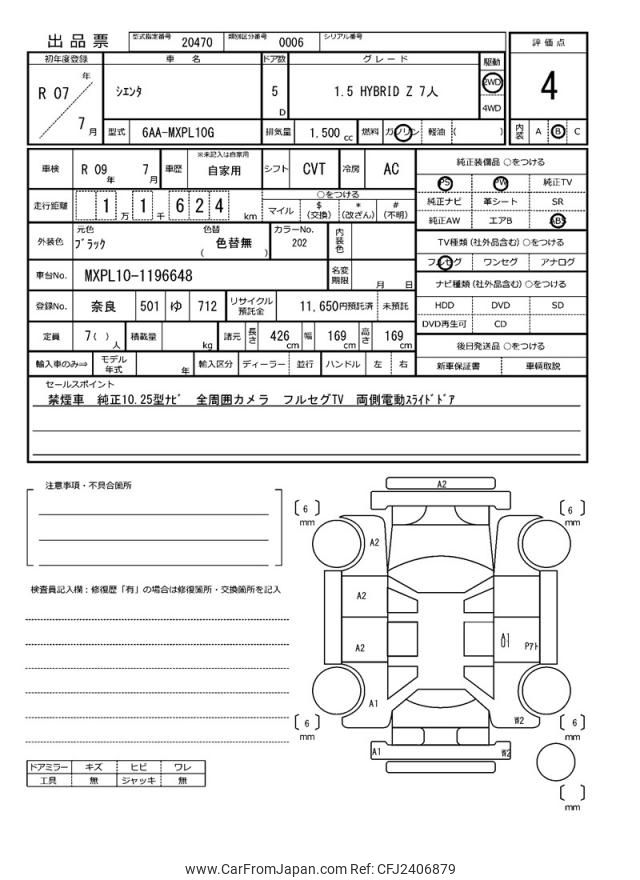 出品票 型式指定番号 20470 類別区分番号 0006 シリアル番号
評価点
4
内装 A B C
初年度登録 車名 ドア数 グレード 駆動
R 07 年 7 月 シエンタ 5 D 1.5 HYBRID Z 7人 2WD
4WD
型式 6AA-MXPL10G 排気量 1.500 cc 燃料 ガソリン 軽油 ( )
車検 R 09 年 7 月 車歴 ※未記入は自家用 自家用 シフト CVT 冷房 AC
走行距離 1 万 1 千 6 2 4 km ○をつける
マイル $(交換) *(改ざん) #(不明)
外装色 元色 ブラック 色替 ( 色替無 ) カラーNo. 202 内装色
車台No. MXPL10-1196648 名変期限 月 日
登録No. 奈良 501 ゆ 712 リサイクル預託金 11,650円預託済 未預託
定員 7( ) 人 積載量 kg 諸元 長さ 426 cm 幅 169 cm 高さ 169 cm
輸入車のみ⇒ モデル年式 年 輸入区分 ディーラー 並行 ハンドル 左 右
純正装備品 ○をつける
PS PW 純正TV
純正ナビ 革シート SR
純正AW エアB ABS
TV種類 (社外品含む) ○をつける
フルセグ ワンセグ アナログ
ナビ種類 (社外品含む) ○をつける
HDD DVD SD
DVD再生可 CD
後日発送品 ○をつける
新車保証書 車輌取説
セールスポイント
禁煙車 純正10.25型ナビ 全周囲カメラ フルセグTV 両側電動スライドドア
注意事項・不具合箇所
検査員記入欄:修復歴「有」の場合は修復箇所・交換箇所を記入
ドアミラー キズ ヒビ ワレ
工具 無 ジャッキ 無
A2
[ 6 ] mm
[ 6 ] mm
A2
A2
A2
A1
P7ト
A1
W2
[ 6 ] mm
[ 6 ] mm
A1
W2
[ ] mm
www.CarFromJapan.com Ref: CFJ2406879